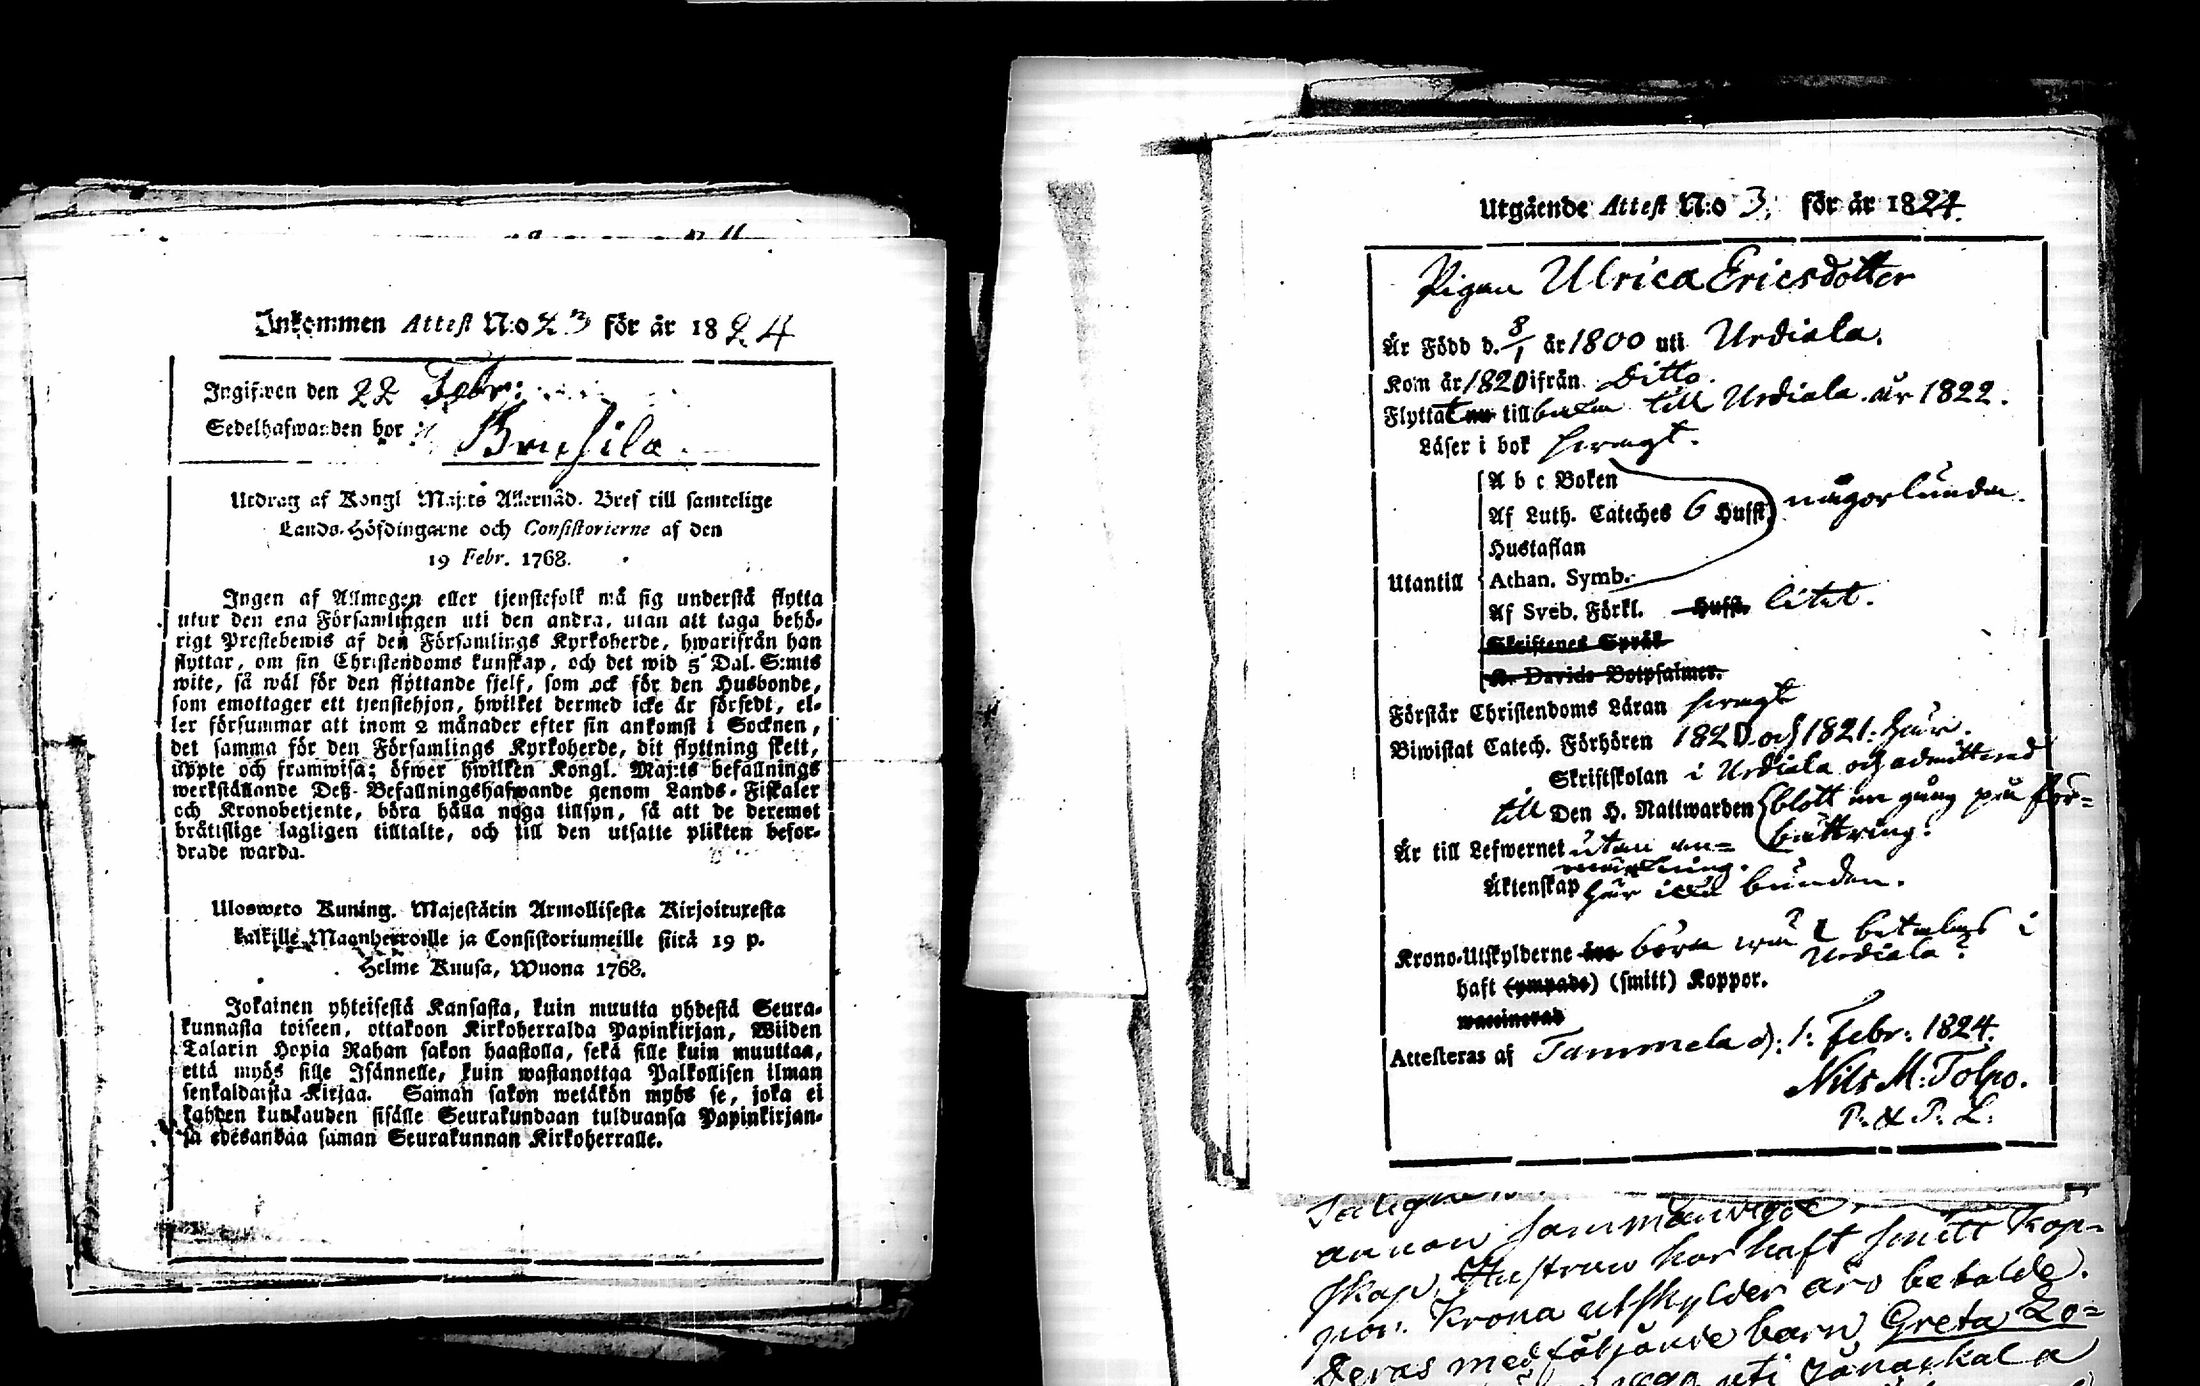 Inkommen Attest N:o 23 för år 1824
Ingifwen den 22 Febr:
Sedelhafwanden bor i Brusila.
Utdrag af Kongl Maj:ts Allernåd. Bref till samtelige
Lands-Höfdingarne och Consistorierne af den
19 Febr. 1768.
Ingen af Allmogen eller tjenstefolk må sig understå flytta
utur den ena Församlingen uti den andra, utan att taga behö-
rigt Prestebewis af den Församlings Kyrkoherde, hwarifrån han
flyttar, om sin Christendoms kunskap, och det wid 5 Dal. S:mts
wite, så wäl för den flyttande sjelf, som ock för den Husbonde,
som emottager ett tjenstehjon, hwilket dermed icke är försedt, el-
ler försummar att inom 2 månader efter sin ankomst i Socknen,
det samma för den Församlings Kyrkoherde, dit flyttning skett,
uppte och framwisa; öfwer hwilken Kongl. Maj:ts befallnings
werkställande Deß Befallningshafwande genom Lands-Fiskaler
och Kronobetjente, böra hålla noga tillsyn, så att de deremot
bråttslige lagligen tilltalte, och till den utsatte plikten befor-
drade warda.
Ulosweto Kuning. Majestätin Armollisesta Kirjoituxesta
kaikille Maanherroille ja Consistoriumeille siitä 19 p.
Helme Kuusa, Wuona 1768.
Jokainen yhteisestä Kansasta, kuin muutta yhdestä Seura-
kunnasta toiseen, ottakoon Kirkoherralda Papinkirjan, Wiiden
Talarin Hopia Rahan sakon haastolla, sekä sille kuin muuttaa,
että myös sille Isännelle, kuin wastanottaa Palkollisen ilman
senkaldaista Kirjaa. Saman sakon wetäkön myös se, joka ei
kahden kuukauden sisälle Seurakundaan tulduansa Papinkirjan-
sa edesandaa saman Seurakunnan Kirkoherralle.
Utgående Attest N:o 3. för år 1824.
Pigan Ulrica Ericsdotter
Är Född d. 8/1 år 1800 uti Urdiala.
Kom år 1820 ifrån Ditto.
Flyttat nu till baka till Urdiala år 1822.
Läser i bok swagt.
A b c Boken
Af Luth. Cateches 6 Hufst. någorlunda.
Hustaflan
Utantill Athan. Symb.
Af Sveb. Förkl. Hufst. litet.
Skriftenes Språk
K. Davids Botpsalmer.
Förstår Christendoms Läran swagt
Biwistat Catech. Förhören 1820 och 1821. här.
Skriftskolan i Urdiala och admitterad
till Den H. Nattwarden blott en gång på för-
bättring.
Är till Lefwernet utan an-
märkning.
Äktenskap här icke bunden.
Krono-Utskylderne äro böra wäl betalas i
Urdiala?
haft (ympade) (smitt) Koppor.
waccinerad
Attesteras af Tammela d. 1. Febr: 1824.
Nils M: Tolpo.
P. & P. L.
annon
skap. Hustrun har haft smitt kop-
por. Krona utskylder äro betalde.
Deras medföljande barn Greta Lo-
uti Janackala